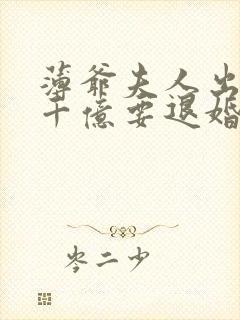 薄爷夫人出
十億要退婚
岑二少